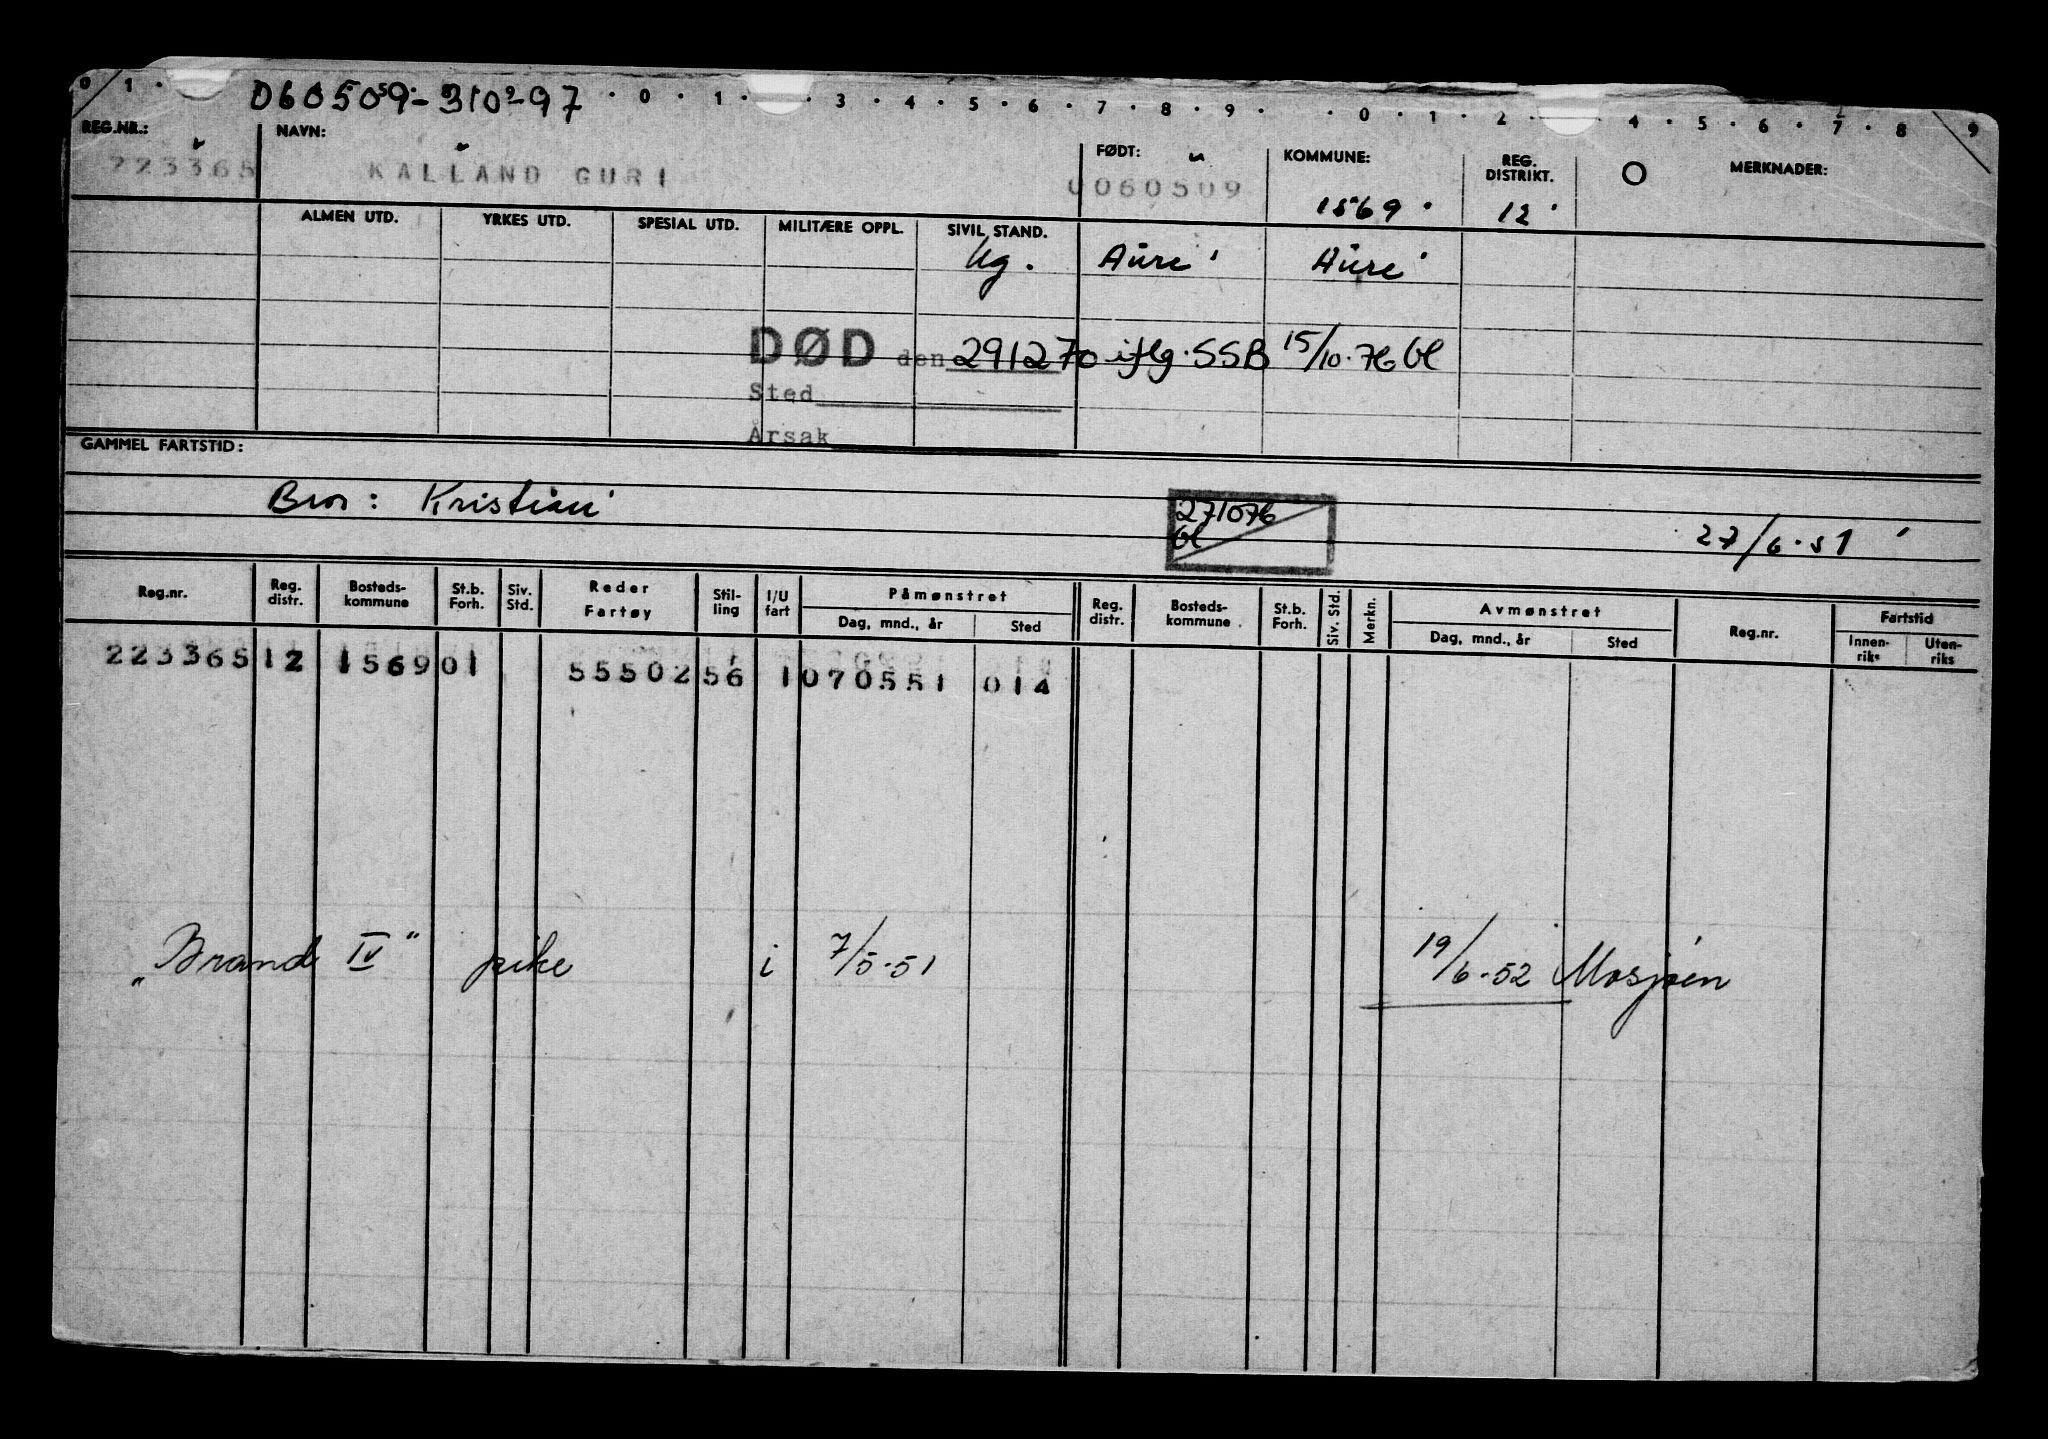 0 1 · 060509-310297 · 0 · 1 · · 3 · 4 · 5 · 6 · 7 · 8 · 9 · · 0 · 1 · 2 · 4 · 5 · 6 · 7 · 8 9
REG.NR.: NAVN: FØDT: KOMMUNE: REG. DISTRIKT. MERKNADER:
223365 KALLAND GURI 0060509 1569 12
ALMEN UTD. YRKES UTD. SPESIAL UTD. MILITÆRE OPPL. SIVIL STAND.
Ug. Aure Aure
DØD den 291270 iflg. SSB 15/10.76 bl
Sted
Årsak
GAMMEL FARTSTID:
Bror: Kristian 271076
bl 27/6.51
Reg.nr. Reg. distr. Bosteds-kommune St.b. Forh. Siv. Std. Reder Fartøy Stil-ling I/U fart Påmønstret Dag, mnd., år Sted Reg. distr. Bosteds-kommune St.b. Forh. Siv. Std. Merkn. Avmønstret Dag, mnd., år Sted Reg.nr. Fartstid Innen-riks Uten-riks
223365 12 1569 01 55502 56 1 070551 014
"Brand IV" pike i 7/5.51 19/6.52 Mosjøen